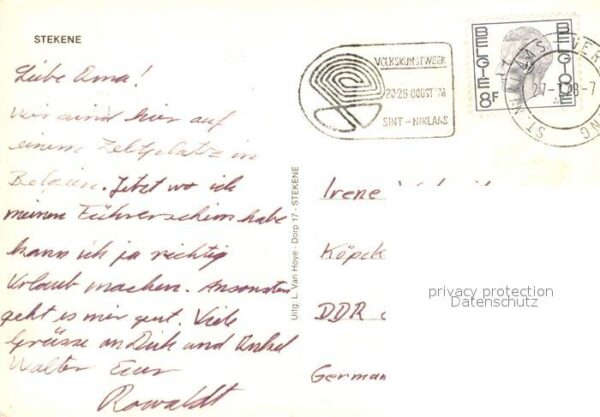 STEKENE
Liebe Oma!
Wir sind hier auf
einem Zeltplatz in
Belgien. Jetzt wo ich
meinen Führerschein habe
kann ich ja richtig
Urlaub machen. Ansonsten
geht es mir gut. Viele
Grüsse an Dich und Onkel
Walter Euer
Uitg. L. Van Hoye - Dorp 17 - STEKENE
VOLKSKUNSTWEEK
20-25 OOGST '78
SINT - NIKLAAS
BELGIE BELGIQUE
8F
Irene
Köpck
DDR
German
privacy protection
Datenschutz